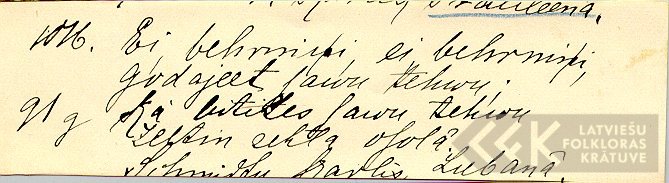 Strauteena.
1016. Ei, behrniņi, ei behrniņi,
godajeet sawu tehwu;
91 g Kà bitites sawu tehwu
Zeltin sehta osolâ.
Schmidtu Karlis, Lubanâ.
LATVIEŠU
FOLKLORAS
KRĀTUVE